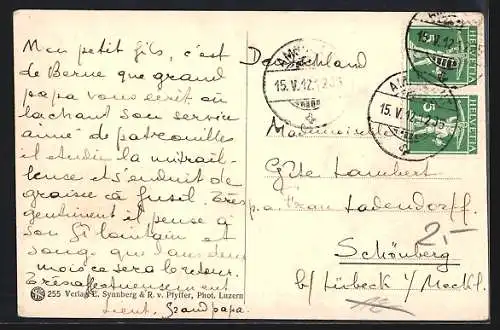 Mon petit fils, c'est
de Berne que grand
papa vous écrit où
lachant son service
aimé de patrouilles
il étudie la mitrail-
lence et s'enduit de
graisse à fusil. Très
gentiment il pense à
son Gl lointain et
songe que dans deux
mois ce sera le retour.
Très affectueusement
Lieut. Grandpapa.
255 Verlag E. Synnberg & R. v. Pfyffer, Phot. Luzern
Deutschland
Mademoiselle
Güte Lambert
p. a. Frau Ladendorff.
Schönberg
b/ Lübeck i/ Meckl.
2,-
15.V.12.
15.V.12.
15.V.12.
HELVETIA
5
HELVETIA